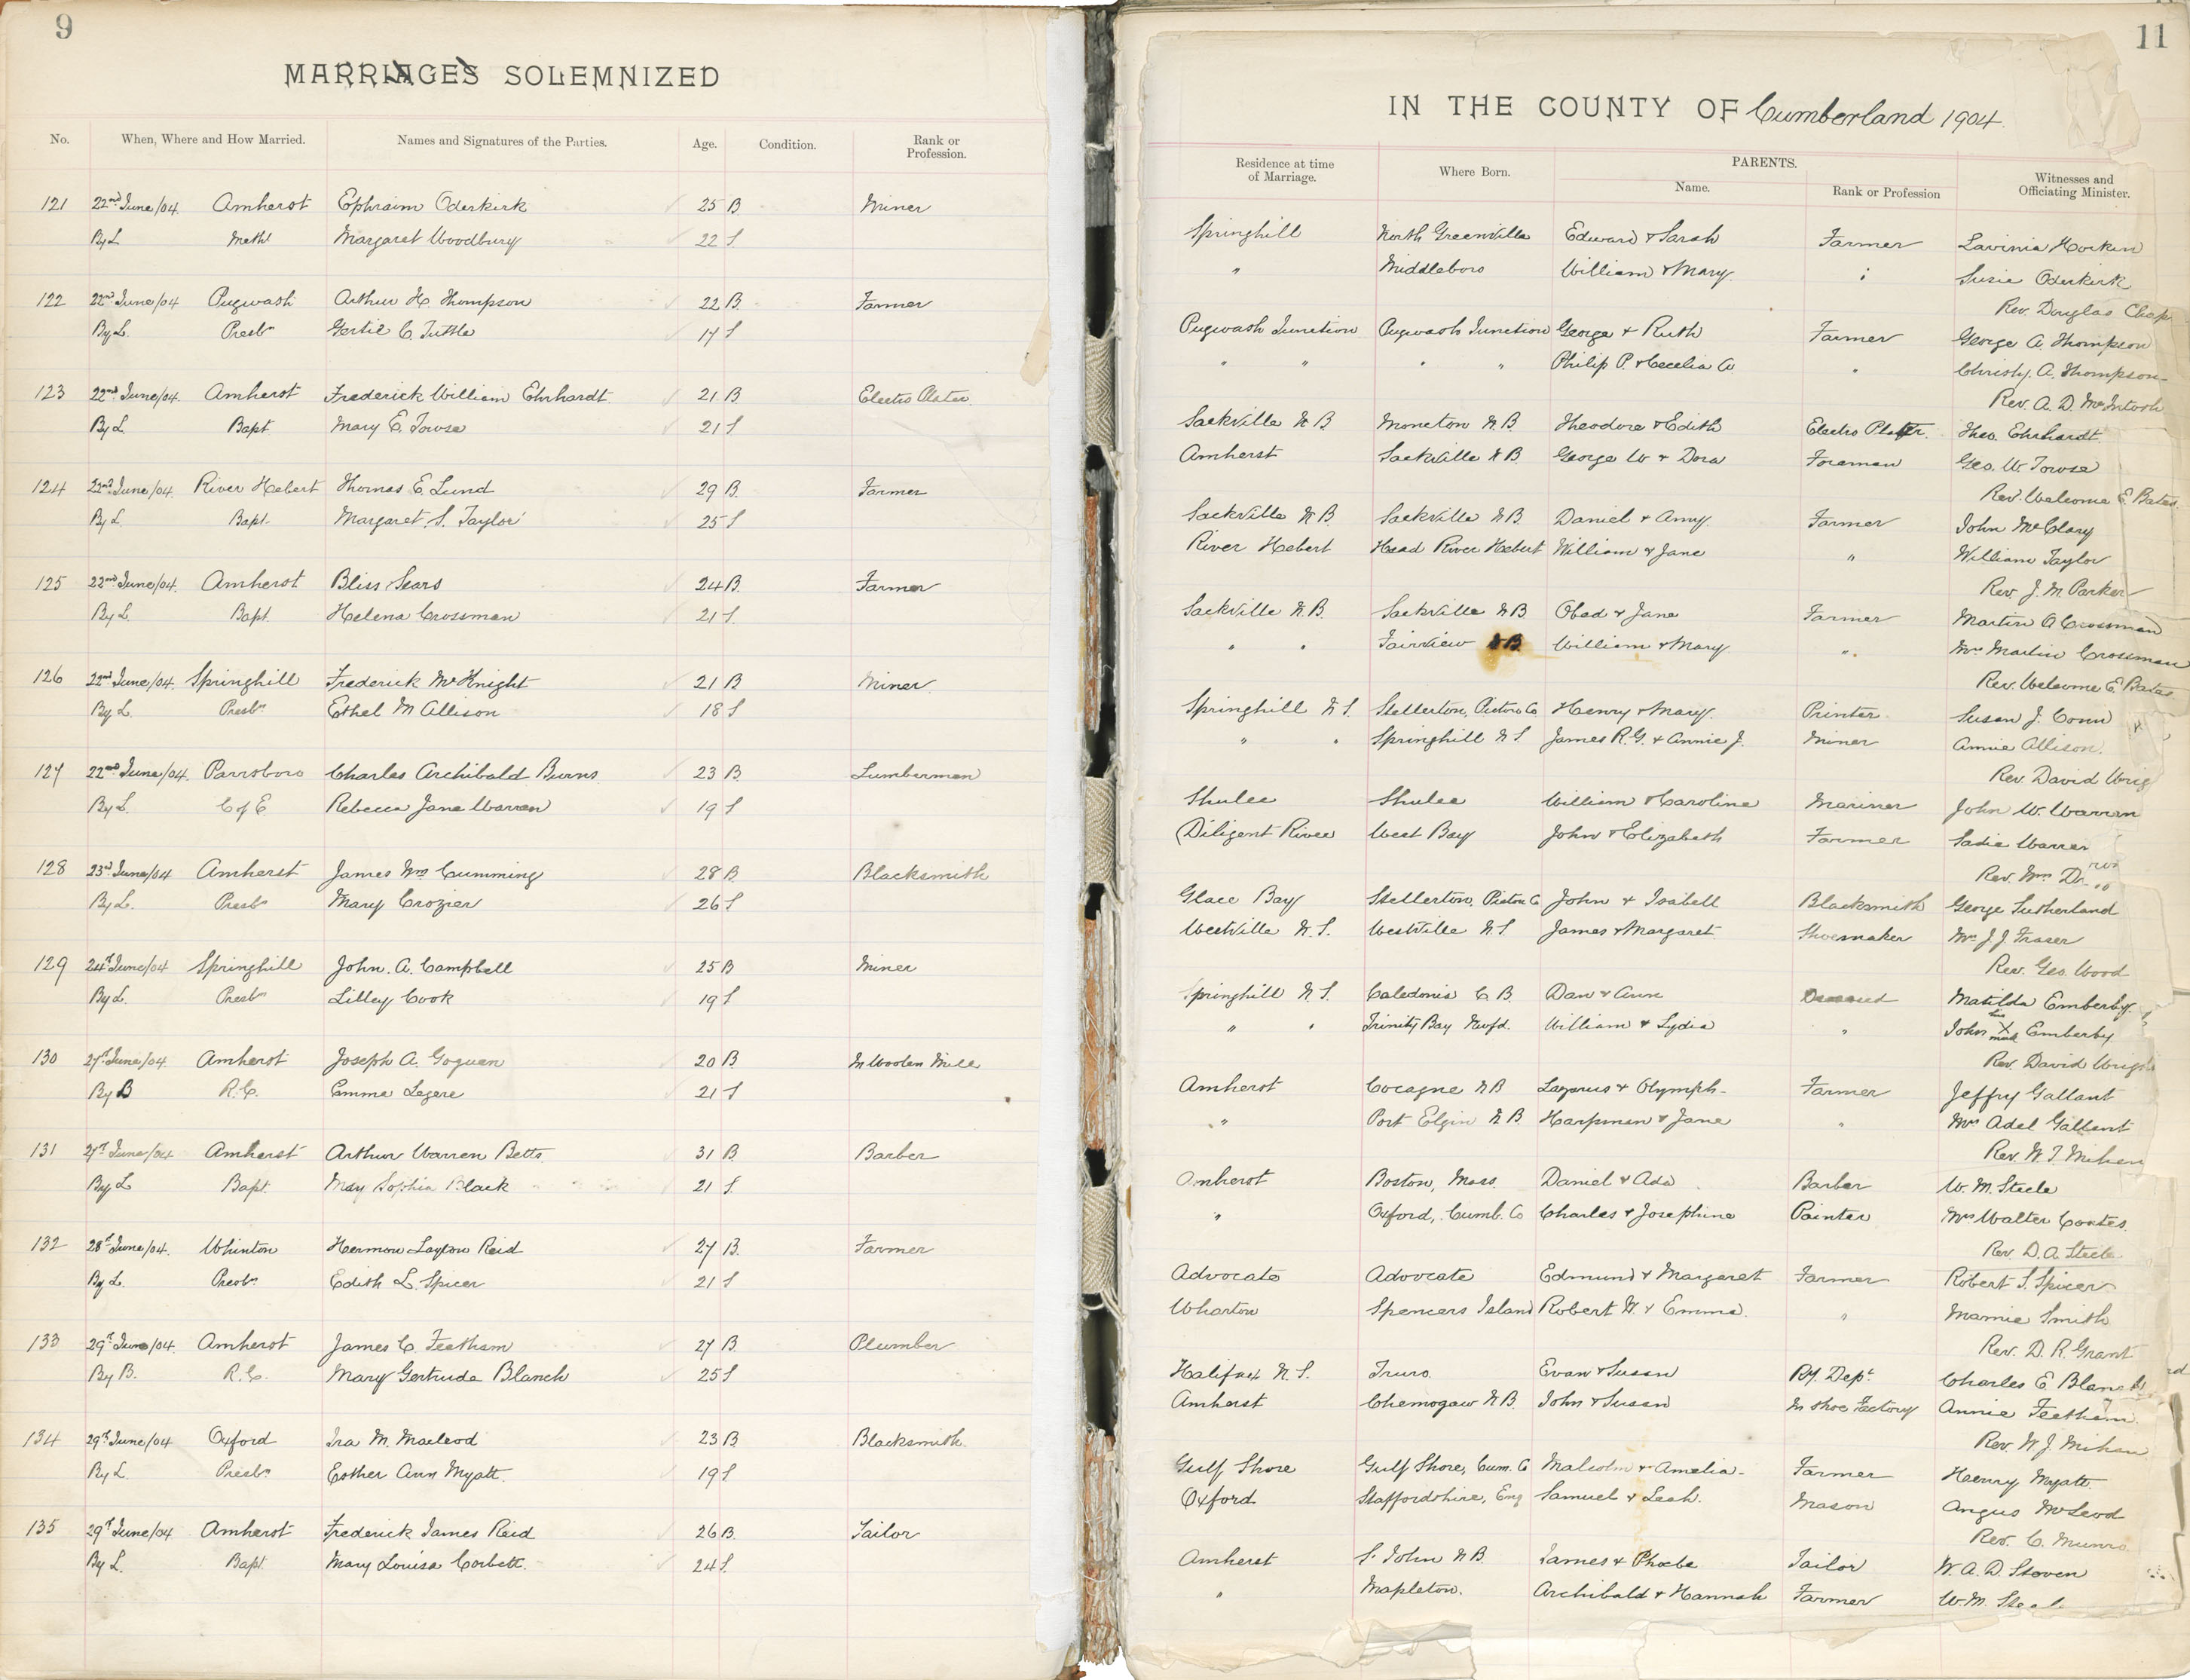 9
MARRIAGES SOLEMNIZED
No. When, Where and How Married. Names and Signatures of the Parties. Age. Condition. Rank or Profession.
121 22nd June/04 Amherst Ephraim Oderkirk 25 B Miner
By L Meth Margaret Woodbury 22 S
122 22nd June/04 Pugwash Arthur H Thompson 22 B Farmer
By L. Presbn Gertie C. Tuttle 17 S
123 22nd June/04. Amherst Frederick William Ehrhardt 21 B Electro Plater
By L. Bapt Mary E. Towse 21 S
124 22nd June/04. River Hebert Thomas E. Lund 29 B. Farmer
By L. Bapt. Margaret. S. Taylor 25 S
125 22nd June/04. Amherst Bliss Sears 24 B. Farmer
By L. Bapt. Helena Crossman 21 S.
126 22nd June/04. Springhill Frederick McKnight 21 B Miner
By L. Presbn Ethel M Allison 18 S
127 22nd June/04. Parrsboro Charles Archibald Burns 23 B. Lumberman
By L. C of E. Rebecca Jane Warren 19 S
128 23rd June/04 Amherst James Wm Cumming 28 B. Blacksmith
By L. Presbn Mary Crozier 26 S
129 24th June/04 Springhill John. A. Campbell 25 B Miner
By L. Presbn Lilley Cook 19 S
130 27th June/04. Amherst Joseph A. Goguen 20 B In Woolen Mill
By B R.C. Emma Legere 21 S
131 27th June/04 Amherst Arthur Warren Betts 31 B. Barber
By L Bapt. May Sophia Black 21 S.
132 28th June/04. Whinton Hermon Layton Reid 27 B. Farmer
By L. Presbn. Edith L. Spicer 21 S
133 29th June/04. Amherst James C. Feetham 27 B. Plumber
By B. R.C. Mary Gertrude Blanch 25 S
134 29th June/04 Oxford Ira M. Macleod 23 B Blacksmith.
By L. Presbn Esther Ann Myatt. 19 S
135 29th June/04 Amherst Frederick James Reid 26 B. Tailor
By L. Bapt. Mary Louisa Corbett. 24 S.
11
IN THE COUNTY OF Cumberland 1904.
Residence at time of Marriage. Where Born. PARENTS. Name. Rank or Profession Witnesses and Officiating Minister.
Springhill North Greenville Edward & Sarah Farmer Lavinia Horkin
" Middleboro William & Mary " Susie Oderkirk
Rev. Douglas Chap
Pugwash Junction Pugwash Junction George & Ruth Farmer George A. Thompson
" " " " Philip P. & Cecelia A " Christy. A. Thompson
Rev. A. D. McIntosh
Sackville N B Moncton N. B Theodore & Edith Electro Plater. Theo. Ehrhardt
Amherst Sackville N B. George W & Dora Foreman Geo. W. Towse
Rev. Welcome E. Bates
Sackville N B. Sackville N B. Daniel & Amy. Farmer John McClary
River Hebert Head River Hebert William & Jane " William Taylor
Rev. J. M. Parker
Sackville N. B. Sackville N B Obed & Jane Farmer Martin A Crossman
" " Fairview N B. William & Mary ". Mrs Martin Crossman
Rev. Welcome E. Bates
Springhill N S. Stellerton, Pictou Co Henry & Mary. Printer Susan J. Conn
" " Springhill N S James R. G. & Annie J. Miner Annie Allison.
Rev. David Wrig
Shulee Shulee William & Caroline Mariner John W. Warren
Diligent River West Bay John & Elizabeth Farmer Sadie Warren
Rev. Wm
Glace Bay Stellerton, Pictou Co John & Isabell Blacksmith George Sutherland
Westville N. S. Westville N. S James & Margaret Shoemaker Mrs J J Fraser
Rev. Geo. Wood
Springhill N S. Caledonia C. B. Dan & Ann Deceased Matilda Emberby.
" " Trinity Bay Newfd. William & Lydia " John his X mark Emberby
Rev. David Wrigh
Amherst Cocagne N B Lazarus & Olymph- Farmer Jeffry Gallant
" Port Elgin N B. Harpman & Jane " Mrs Adel Gallant
Rev. W. J. Mihan
Amherst Boston, Mass. Daniel & Ada Barber W. M. Steele
" Oxford, Cumb. Co Charles & Josephine Painter Mrs Walter Coates.
Rev. D. A. Steele
Advocate Advocate Edmund & Margaret Farmer Robert S. Spicer
Wharton Spencers Island Robert W. & Emma. " Mamie Smith
Rev. D. R. Grant
Halifax N. S. Truro. Evan & Susan Ry. Dept. Charles E Blanch
Amherst Chemogaw N B. John & Susan In Shoe Factory Annie Feetham.
Rev. W J. Mihan
Gulf Shore Gulf Shore, Cum. Co Malcolm & Amelia- Farmer Henry Myatt
Oxford Staffordshire, Eng Samuel & Leah. Mason Angus McLeod
Rev. C. Munro
Amherst S. John N B. James & Phoebe Tailor W. A. D. Steven
" Mapleton. Archibald & Hannah Farmer W. M.